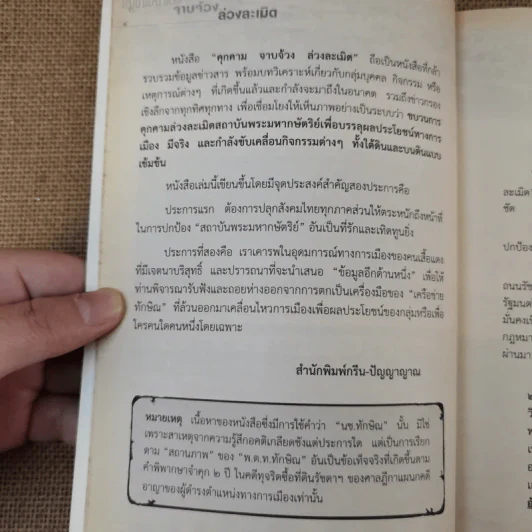 จาบจ้วง
ล่วงละเมิด
หนังสือ "คุกคาม จาบจ้วง ล่วงละเมิด" ถือเป็นหนังสือที่กล้า
รวบรวมข้อมูลข่าวสาร พร้อมบทวิเคราะห์เกี่ยวกับกลุ่มบุคคล กิจกรรม หรือ
เหตุการณ์ต่างๆ ที่เกิดขึ้นแล้วและกำลังจะมาถึงในอนาคต รวมถึงข่าวกรอง
เชิงลึกจากทุกทิศทุกทาง เพื่อเชื่อมโยงให้เห็นภาพอย่างเป็นระบบว่า ขบวนการ
คุกคามล่วงละเมิดสถาบันพระมหากษัตริย์เพื่อบรรลุผลประโยชน์ทางการ
เมือง มีจริง และกำลังขับเคลื่อนกิจกรรมต่างๆ ทั้งใต้ดินและบนดินแบบ
เข้มข้น
หนังสือเล่มนี้เขียนขึ้นโดยมีจุดประสงค์สำคัญสองประการคือ
ประการแรก ต้องการปลุกสังคมไทยทุกภาคส่วนให้ตระหนักถึงหน้าที่
ในการปกป้อง "สถาบันพระมหากษัตริย์" อันเป็นที่รักและเทิดทูนยิ่ง
ประการที่สองคือ เราเคารพในอุดมการณ์ทางการเมืองของคนเสื้อแดง
ที่มีเจตนาบริสุทธิ์ และปรารถนาที่จะนำเสนอ "ข้อมูลอีกด้านหนึ่ง" เพื่อให้
ท่านพิจารณารับฟังและถอยห่างออกจากการตกเป็นเครื่องมือของ "เครือข่าย
ทักษิณ" ที่ล้วนออกมาเคลื่อนไหวการเมืองเพื่อผลประโยชน์ของกลุ่มหรือเพื่อ
ใครคนใดคนหนึ่งโดยเฉพาะ
สำนักพิมพ์กรีน-ปัญญาญาณ
หมายเหตุ เนื้อหาของหนังสือซึ่งมีการใช้คำว่า "นช.ทักษิณ" นั้น มิใช่
เพราะสาเหตุจากความรู้สึกอคติเกลียดชังแต่ประการใด แต่เป็นการเรียก
ตาม "สถานภาพ" ของ "พ.ต.ท.ทักษิณ" อันเป็นข้อเท็จจริงที่เกิดขึ้นตาม
คำพิพากษาจำคุก ๒ ปี ในคดีทุจริตซื้อที่ดินรัชดาฯ ของศาลฎีกาแผนกคดี
อาญาของผู้ดำรงตำแหน่งทางการเมืองเท่านั้น
ละเมิด
ชัด
ปกป้อง
ถนนรัช
รัฐมนต
มั่นคงเ
กฎหมา
ผ่านมา